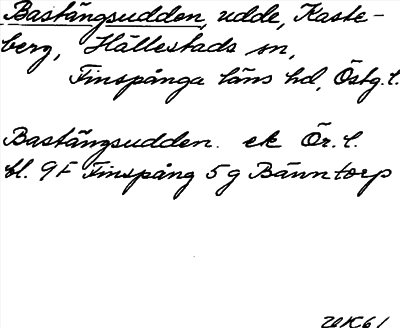 Bastängsudden, udde, Kaste-
berg, Hällestads sn,
Finspånga läns hd, Östg.l.
Bastängsudden. ek Ör.l.
bl. 9F Finspång 5g Bänntorp